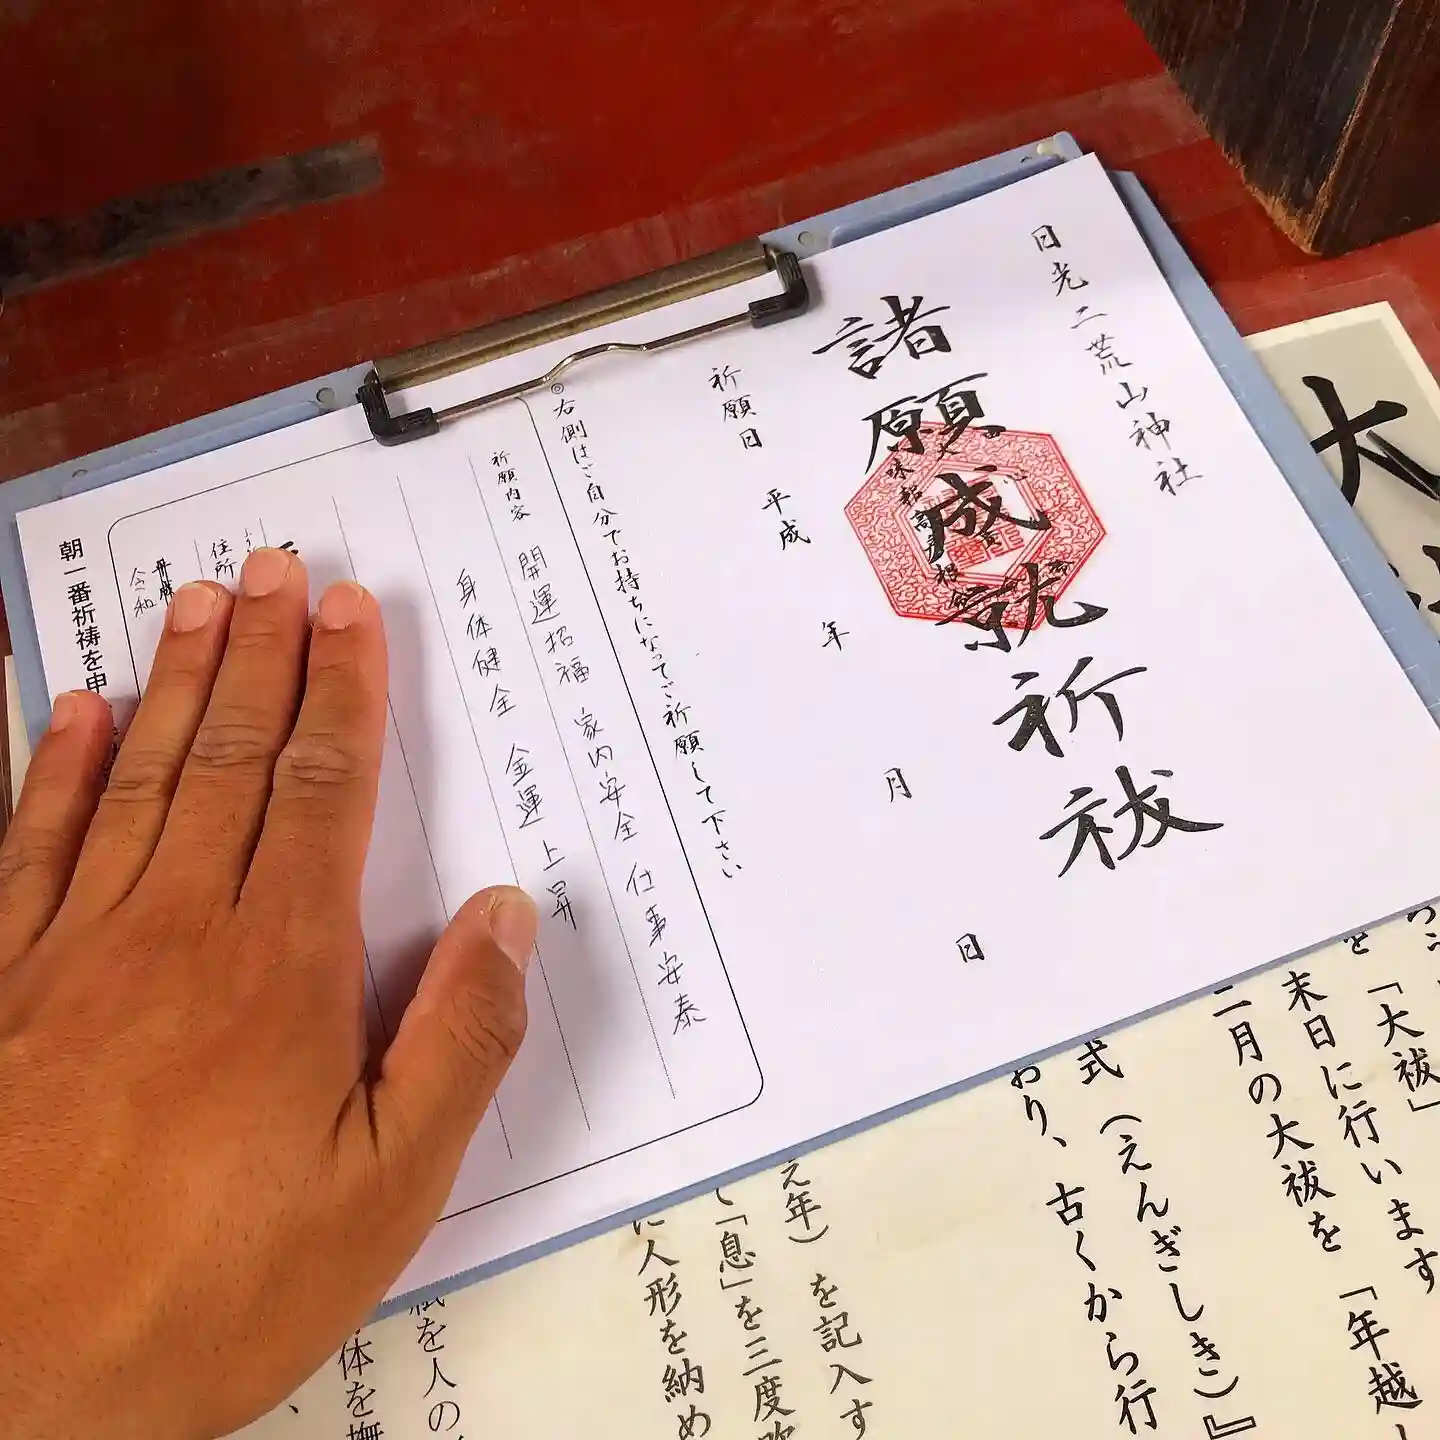 日光二荒山神社
諸願成就祈祓
祈願日 平成 年 月 日
◎右側はご自分でお持ちになってご祈願して下さい
祈願内容 開運招福 家内安全 仕事安泰
身体健全 金運上昇
住所
令和
朝一番祈祷を申
大
を「大祓」
末日に行います
二月の大祓を「年越し
式(えんぎしき)』
おり、古くから行
元年)を記入す
て「息」を三度吹
に人形を納め
紙を人の
体を撫